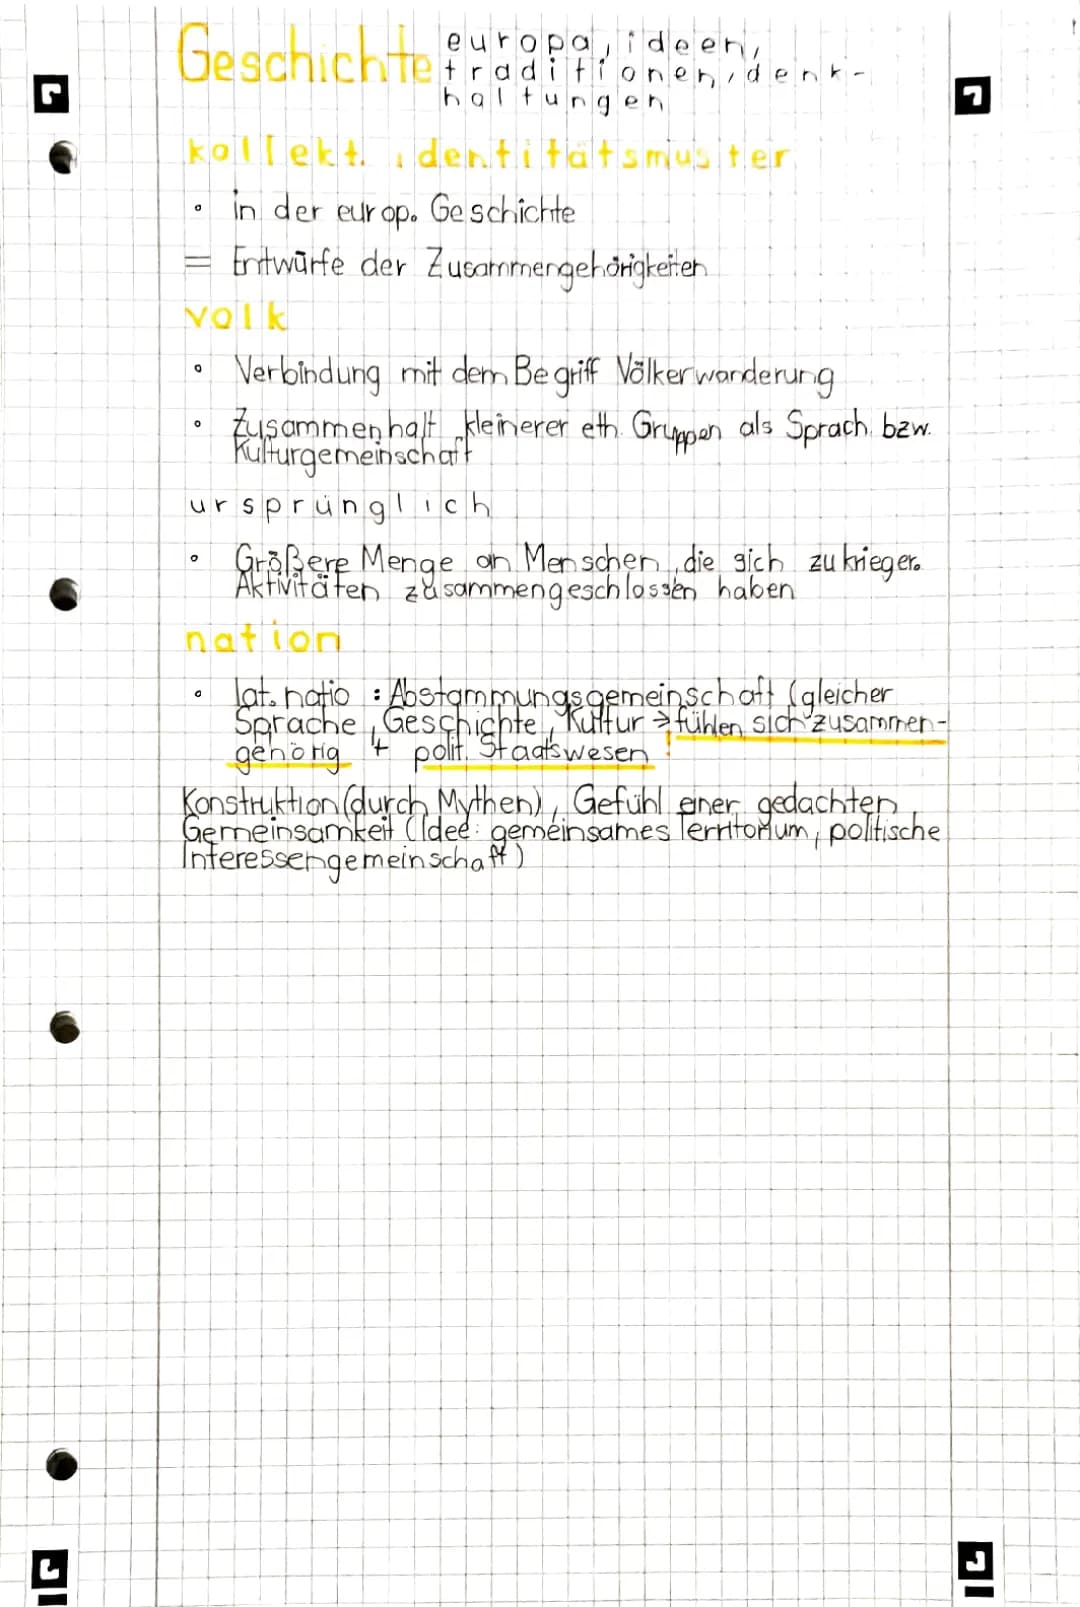 Geschichte europa, ideen,
traditionen, denk-
haltungen
kollekt. identitätsmuster
• in der europ. Geschichte
= Entwürfe der Zusammengehörigkeiten
volk
• Verbindung mit dem Begriff Völkerwanderung
• Zusammenhalt kleinerer eth. Gruppen als Sprach. bzw.
Kulturgemeinschaft
ursprünglich
• Größere Menge an Menschen, die sich zu krieger.
Aktivitäten zusammengeschlossen haben
nation
• lat. natio : Abstammungsgemeinschaft (gleicher
Sprache, Geschichte, Kultur → fühlen sich zusammen-
gehörig + polit. Staatswesen !
Konstruktion (durch Mythen), Gefühl einer gedachten
Gemeinsamkeit (Idee: gemeinsames Territorium, politische
Interessengemeinschaft)